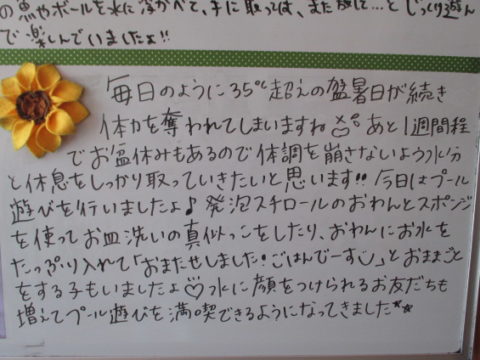 の魚やボールを水に浮かべて、手に取っては、また放して…とじっくり遊ん
で楽しんでいましたよ!!
毎日のように35℃超えの猛暑日が続き
体力を奪われてしまいますね あと1週間程
でお盆休みもあるので体調を崩さないよう水分
と休息をしっかり取っていきたいと思います!! 今日はプール
遊びを行いましたよ♪ 発泡スチロールのおわんとスポンジ
を使ってお皿洗いの真似っこをしたり、おわんにお水を
たっぷり入れて「おまたせしました!ごはんでーす」とおままごと
をする子もいましたよ♡水に顔をつけられるお友だちも
増えてプール遊びを満喫できるようになってきました**